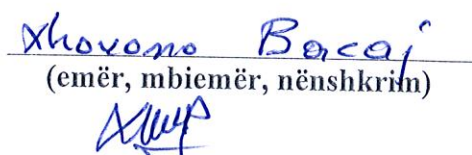 Xhovano Bacaj
(emër, mbiemër, nënshkrim)